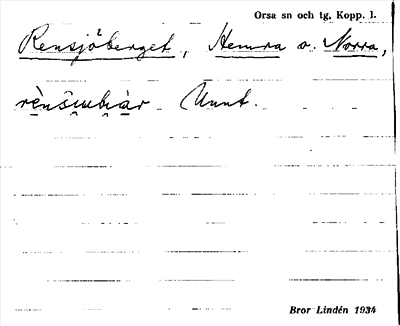 Orsa sn och tg, Kopp. l.
Rensjöberget, Hemra o. Norra,
Munt.
Bror Lindén 1934